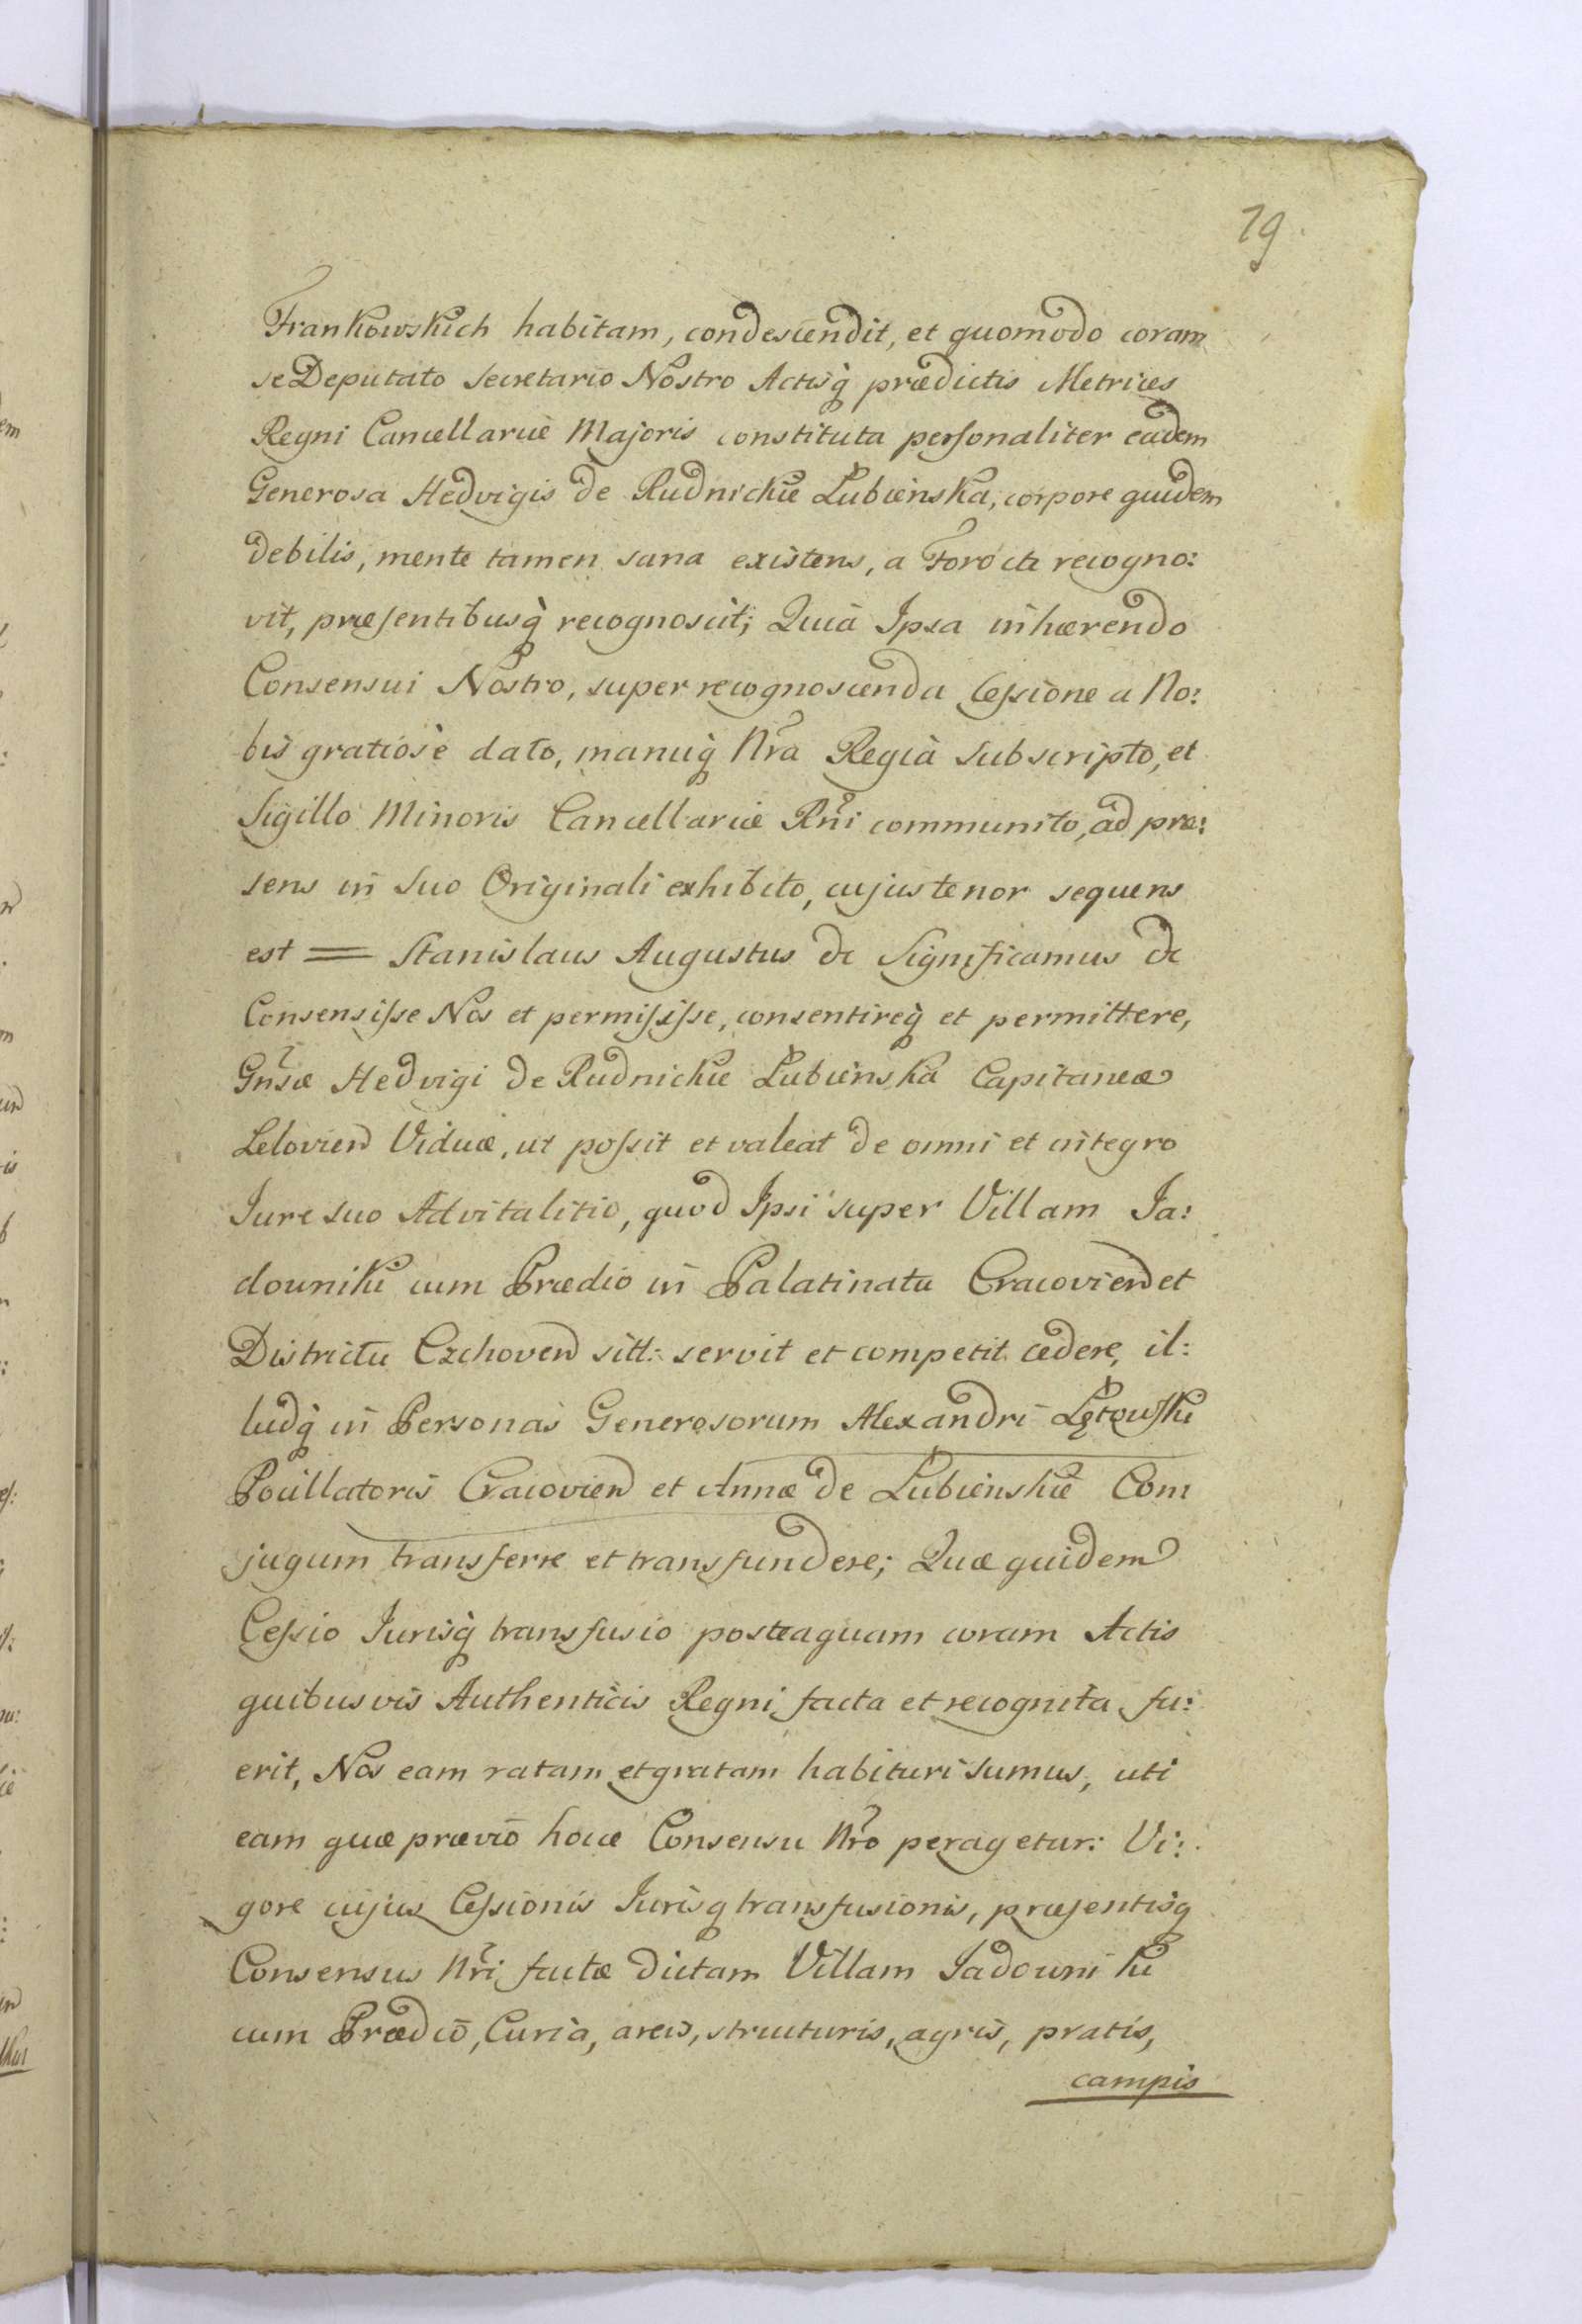 79.
Frankowskich habitam, condescendit, et quomodo coram
se Deputato Secretario Nostro Actisq̀ prædictis Metrices
Regni Cancellariæ Majoris constituta personaliter eadem
Generosa Hedvigis de Rudnickie Łubieńska, corpore quidem
debilis, mente tamen sana existens, a Foro &c recogno:
vit, præsentibusq̀ recognoscit; Quià Ipsa inhærendo
Consensui Nostro, super recognoscenda Cessione a No:
bis gratiosè dato, manuq̀ Nrã Regià subscripto, et
Sigillo Minoris Cancellariæ Rñi communito, ad præ:
sens in suo Originali exhibito, cujus tenor sequens
est = Stanislaus Augustus &c Significamus &c
Consensisse Nos et permisisse, consentireq̀ et permittere,
Gñsæ Hedvigi de Rudnickie Łubieńska Capitaneæ
Lelovien Viduæ, ut possit et valeat de omni et integro
Jure suo Advitalitio, quod Ipsi super Villam Ja:
downiki cum Prædio in Palatinatu Cracovien et
Districtu Czchoven sitt: servit et competit cedere, il:
ludq̀ in Personas Generosorum Alexandri Łętowski
Pocillatoris Cracovien et Annæ de Łubieńskie Con
jugum transferre et transfundere; Quæ quidem
Cessio Jurisq̀ transfusio posteaquam coram Actis
quibusvis Authenticis Regni facta et recognita fu:
erit, Nos eam ratam et gratam habituri sumus, uti
eam quæ prævio hocce Consensu Nr̃o peragetur: Vi:
gore cujus Cessionis Jurisq transfusionis, præsentisq
Consensus Nr̃i factæ dictam Villam Jadowniki
cum Prædio, Curia, areis, structuris, agris, pratis,
campis